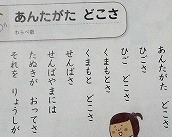 あんたがた どこさ
わらべ歌
あんたがた どこさ
ひごさ
ひご どこさ
くまもとさ
くまもと どこさ
せんばさ
せんばやまには
たぬきが おってさ
それを りょうしが